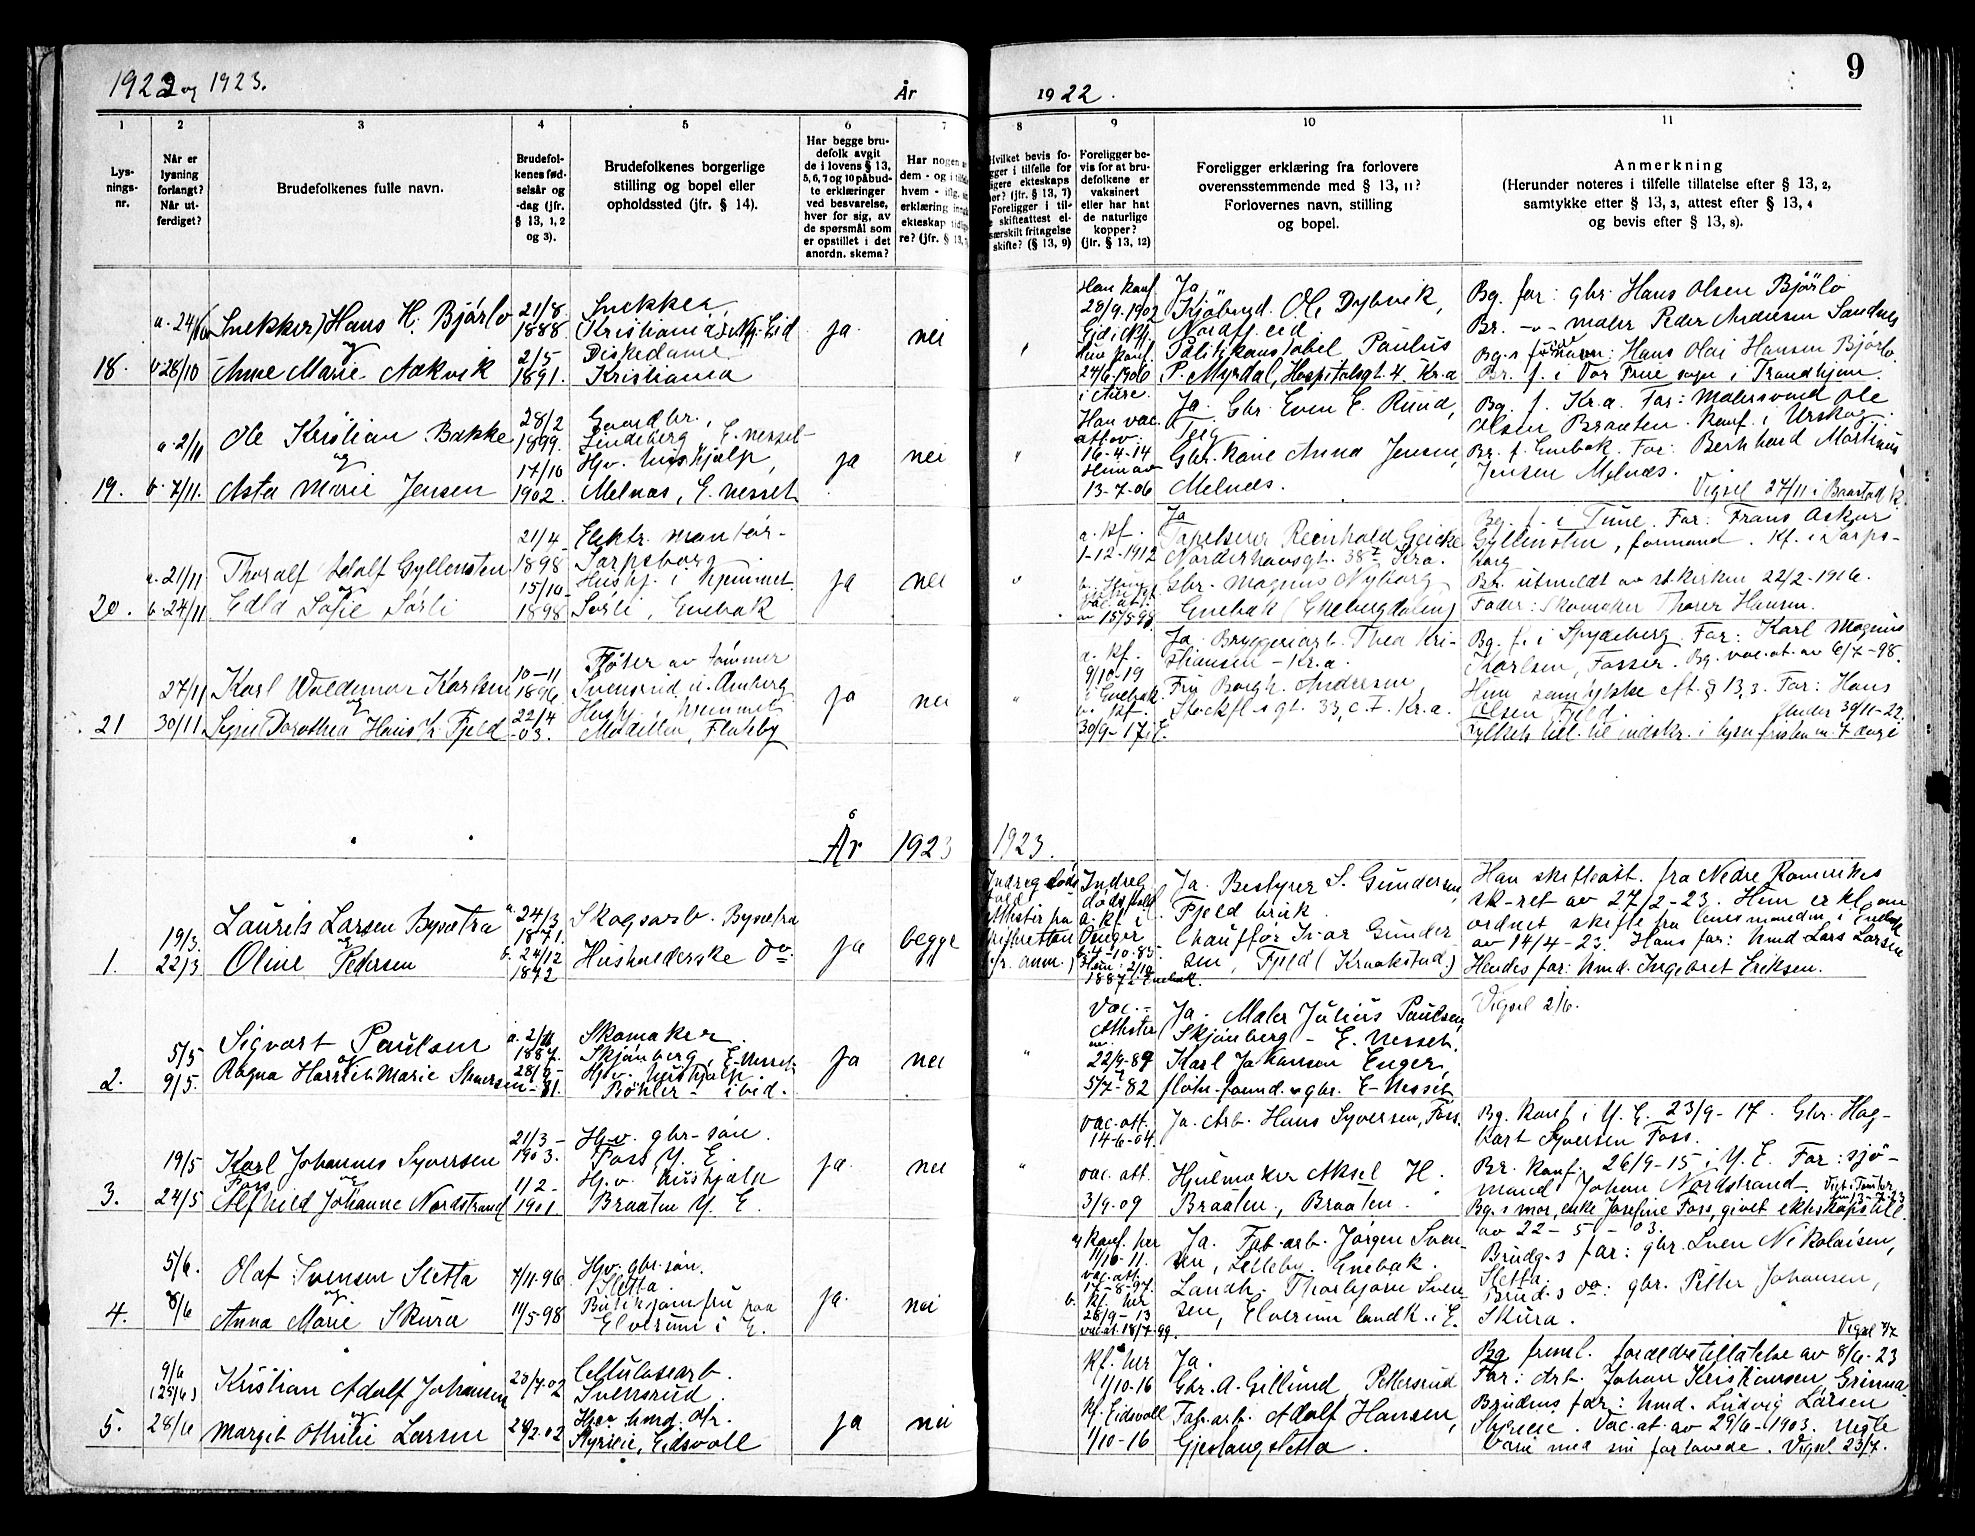 1922 og 1923.
År
1922.
9
1
2
3
4
5
6
7
8
9
10
11
Lys-
nings-
nr.
Når er
lysning
forlangt?
Når ut-
ferdiget?
Brudefolkenes fulle navn.
Brudefol-
kenes fød-
selsår og
-dag (jfr.
§ 13, 1, 2
og 3).
Brudefolkenes borgerlige
stilling og bopel eller
opholdssted (jfr. § 14).
Har begge bru-
defolk avgit
de i lovens § 13,
5, 6, 7 og 10 påbud-
te erklæringer
ved besvarelse,
hver for sig, av
de spørsmål som
er opstillet i det
anordn. skema?
Har nogen
dem - og i
hvem - iflg.
erklæring
ekteskap
re? (jfr. § 13,
Hvilket bevis fo-
gger i tilfelle for
ligere ekteskaps
ør? (jfr. § 13, 7)
Foreligger i til-
skifteattest el-
særskilt fritagelse
skifte? (§ 13, 9)
Foreligger be-
vis for at bru-
defolkene er
vaksinert
eller har hat
de naturlige
kopper?
(jfr. § 13, 12)
Foreligger erklæring fra forlovere
overensstemmende med § 13, 11?
Forlovernes navn, stilling
og bopel.
Anmerkning
(Herunder noteres i tilfelle tillatelse efter § 13, 2,
samtykke efter § 13, 3, attest efter § 13, 4
og bevis efter § 13, 8).
18.
a. 24/10
b 28/10
(Snekker) Hans H. Bjørlo
og
Anne Marie Aakvik
21/8
1888.
2/5
1891.
Snekker,
(Kristiania) Nfj. Eid
Diskedame
Kristiania
ja.
nei
Han konf.
28/9.1902
Eid i Nfj.
Hun konf.
24/6.1906
i Aure.
Ja
Ole Dybvik,
Nordfj.eid
Politikonstabel Paulus
P. Myrdal, Hospitalsgt. 4. Kr.a
Bg. far: gbr. Hans Olsen Bjørlo
Br. -"- maler Peder Andersen Sandnes
Bg.s navn: Hans Olai Hansen Bjørlo.
Br. f. i Vor Frue sogn i Trondhjem.
19.
a. 2/11
b. 7/11.
Ole Kristian Bakke
og
Asta Marie Jensen
28/2
1899.
17/10
1902.
Gaardbr.,
Lindeberg, E. nesset
Hjv. hushjælp,
Melnæs, E. nesset
ja
nei
"
Han vac.
att. av
16-4-14
Hun av
13-7-06
Ja. Gbr. Even E. Ruud,
Teig
Gbr. kone Anna Jensen,
Melnæs.
Bg. f. Kr.a. Far: Malersvend Ole
Olsen Braaten. Konf. i Urskog.
Br. f. Enebak. Far: Bernhard Martinius
Jensen Melnæs.
Vigsel 27/11 i Baastad k.
20.
a. 21/11
b. 24/11
Thoralf Adolf Gyllensten
og
Edla Sofie Sørli
21/4-
1898
15/10-
1898
Elektr. montør-
Sarpsborg
Hushj. i hjemmet
Sørli, Enebak
ja
nei
"
a. kf.
1-12-1912
vac. at.
av 15/5-99
Ja
Tapetserer Reinhold Geicke
Norderhovsgt. 38 Kra.
Gbr. Magnus Nyborg
Enebak (Ekebergdalen)
Bg. f. i Tune. Far: Frans Oskar
Gyllensten, formand. Kf. i Sarps-
borg
Br. utmeldt av st.kirken 22/2-1916.
Fader: Skomaker Thorer Hansen.
21
27/11
30/11
Karl Waldemar Karlsen
og
Signe Dorothea Hansk. Fjeld
10-11
1896.
22/4
-03.
Fløter av tømmer
Svensrud,
Hushj. i hjemmet
Flateby
ja
nei
"
a. kf.
9/10-19
i Enebak.
b. kf.
30/9-17 i E.
Ja. Bryggeriarb. Thea Kri-
stiansen - Kr.a.
Fru Borgh. Andersen,
33, c. I. Kr.a.
Bg. f. i Spydeberg. Far: Karl Magnus
Karlsen, Fosser. Bg. vac.at. av 6/7-98.
Hun samtykke eft. § 13,3. Far: Hans
Olsen Fjeld.
30/11-22.
7 dage
År 1923
1923.
1.
19/3.
22/3
Laurits Larsen Bysætra
og
Oline Pedersen
a. 24/3
1871.
b. 24/12
1872
Skogsarb. Bysætra
Husholderske do.
ja
begge
Indreg. døds-
(jfr. anm.)
Indreg.
dødsfald
a. kf. i
Enger
7-10-85
Hun: 2/10
1887 i Enebak.
Ja. Bestyrer S. Gundersen,
Fjeld bruk.
Chauffør Ivar Gunder
sen, Fjeld (Kraakstad)
Han skifteatt. fra Nedre Romerikes
sk-ret av 27/2-23. Hun erkl. om
ordnet skifte fra lensmanden i Enebak
av 14/4-23. Hans far: Kmd Lars Larsen
Hendes far: Kmd. Ingebret Eriksen.
2.
5/5
9/5.
Sigvart Paulsen
og
Ragna Harriet Marie
a. 2/11
1887.
-81.
Skomaker.
Skjønberg, E-Nesset
Hjv. hushjælp.
Bøhler - ibid.
ja
nei
"
Vac. -
Attester
22/9-89
5/7-82
Ja. Maler Julius Paulsen,
Skjønberg - E. nesset.
Karl Johansen Enger,
gbr. E-Nesset
Vigsel 2/6.
3.
19/5
24/5
Karl Johannes Syversen
Foss og
Alfhild Johanne Nordstrand
21/3-
1903.
11/2-
1901
Hjv. gbr-søn.
Foss Y. E.
Hjv. hushjælp
Braaten Y. E.
ja.
nei
"
vac. att.
14-6-04.
vac. att.
3/9-09
Ja. Arb. Hans Syversen, Foss.
Hjulmaker Aksel H.
Braaten, Braaten.
Bg. konf. i Y. E. 23/9-17. Gbr. Hag-
bart Syversen Foss.
Br. konf. 26/9-15 i Y. E. Far: sjø-
mand Johan Nordstrand.
Bg.s mor, enke Josefine Foss, givet ekteskapstill.
av 22-5-03.
4.
5/6.
8/6
Olaf Svensen Sletta
og
Anna Marie Skura
7/11.96
11/5-98
Hjv. gbr-søn.
Sletta
Butikjomfru paa
Elverum i E.
ja.
nei
a. Konf. her
1/10-11.
vac. att.
17-8-97.
b. kf. her
28/9-13
vac.at. 18/7-99.
Ja. Fab.arb. Jørgen Sven-
sen, Enebak.
Landh. Thorbjørn Sven-
sen, Elverum landh. i E.
Brudg.s far: gbr. Sven Nikolaisen,
Sletta.
Brud.s do: gbr. Petter Johansen,
Skura.
Vigsel 7/7
5.
9/6
(25/6)
28/6
Kristian Adolf Johansen
og
Margit Othilie Larsen
20/7.02
Cellulosearb.
Svensrud.
Hjv. kmd. dtr.
Styrieie, Eidsvoll
ja
nei
kf. her
1/10-16
kf. Eidsvoll
1/10-16
Ja.
Gbr. A. Gillund, Pettersrud
Fab.arb. Adolf Hansen,
Gjeslangsletta.
Bg. freml. forældretillatelse av 8/6-23
Far: Arb. Johan Kristiansen Grinna
Brudens far: Kmd. Ludvig Larsen
Styrieie. Vac.at. av 29/6-1903. Uegte
barn med sin forlovede. Vigsel. 23/7.